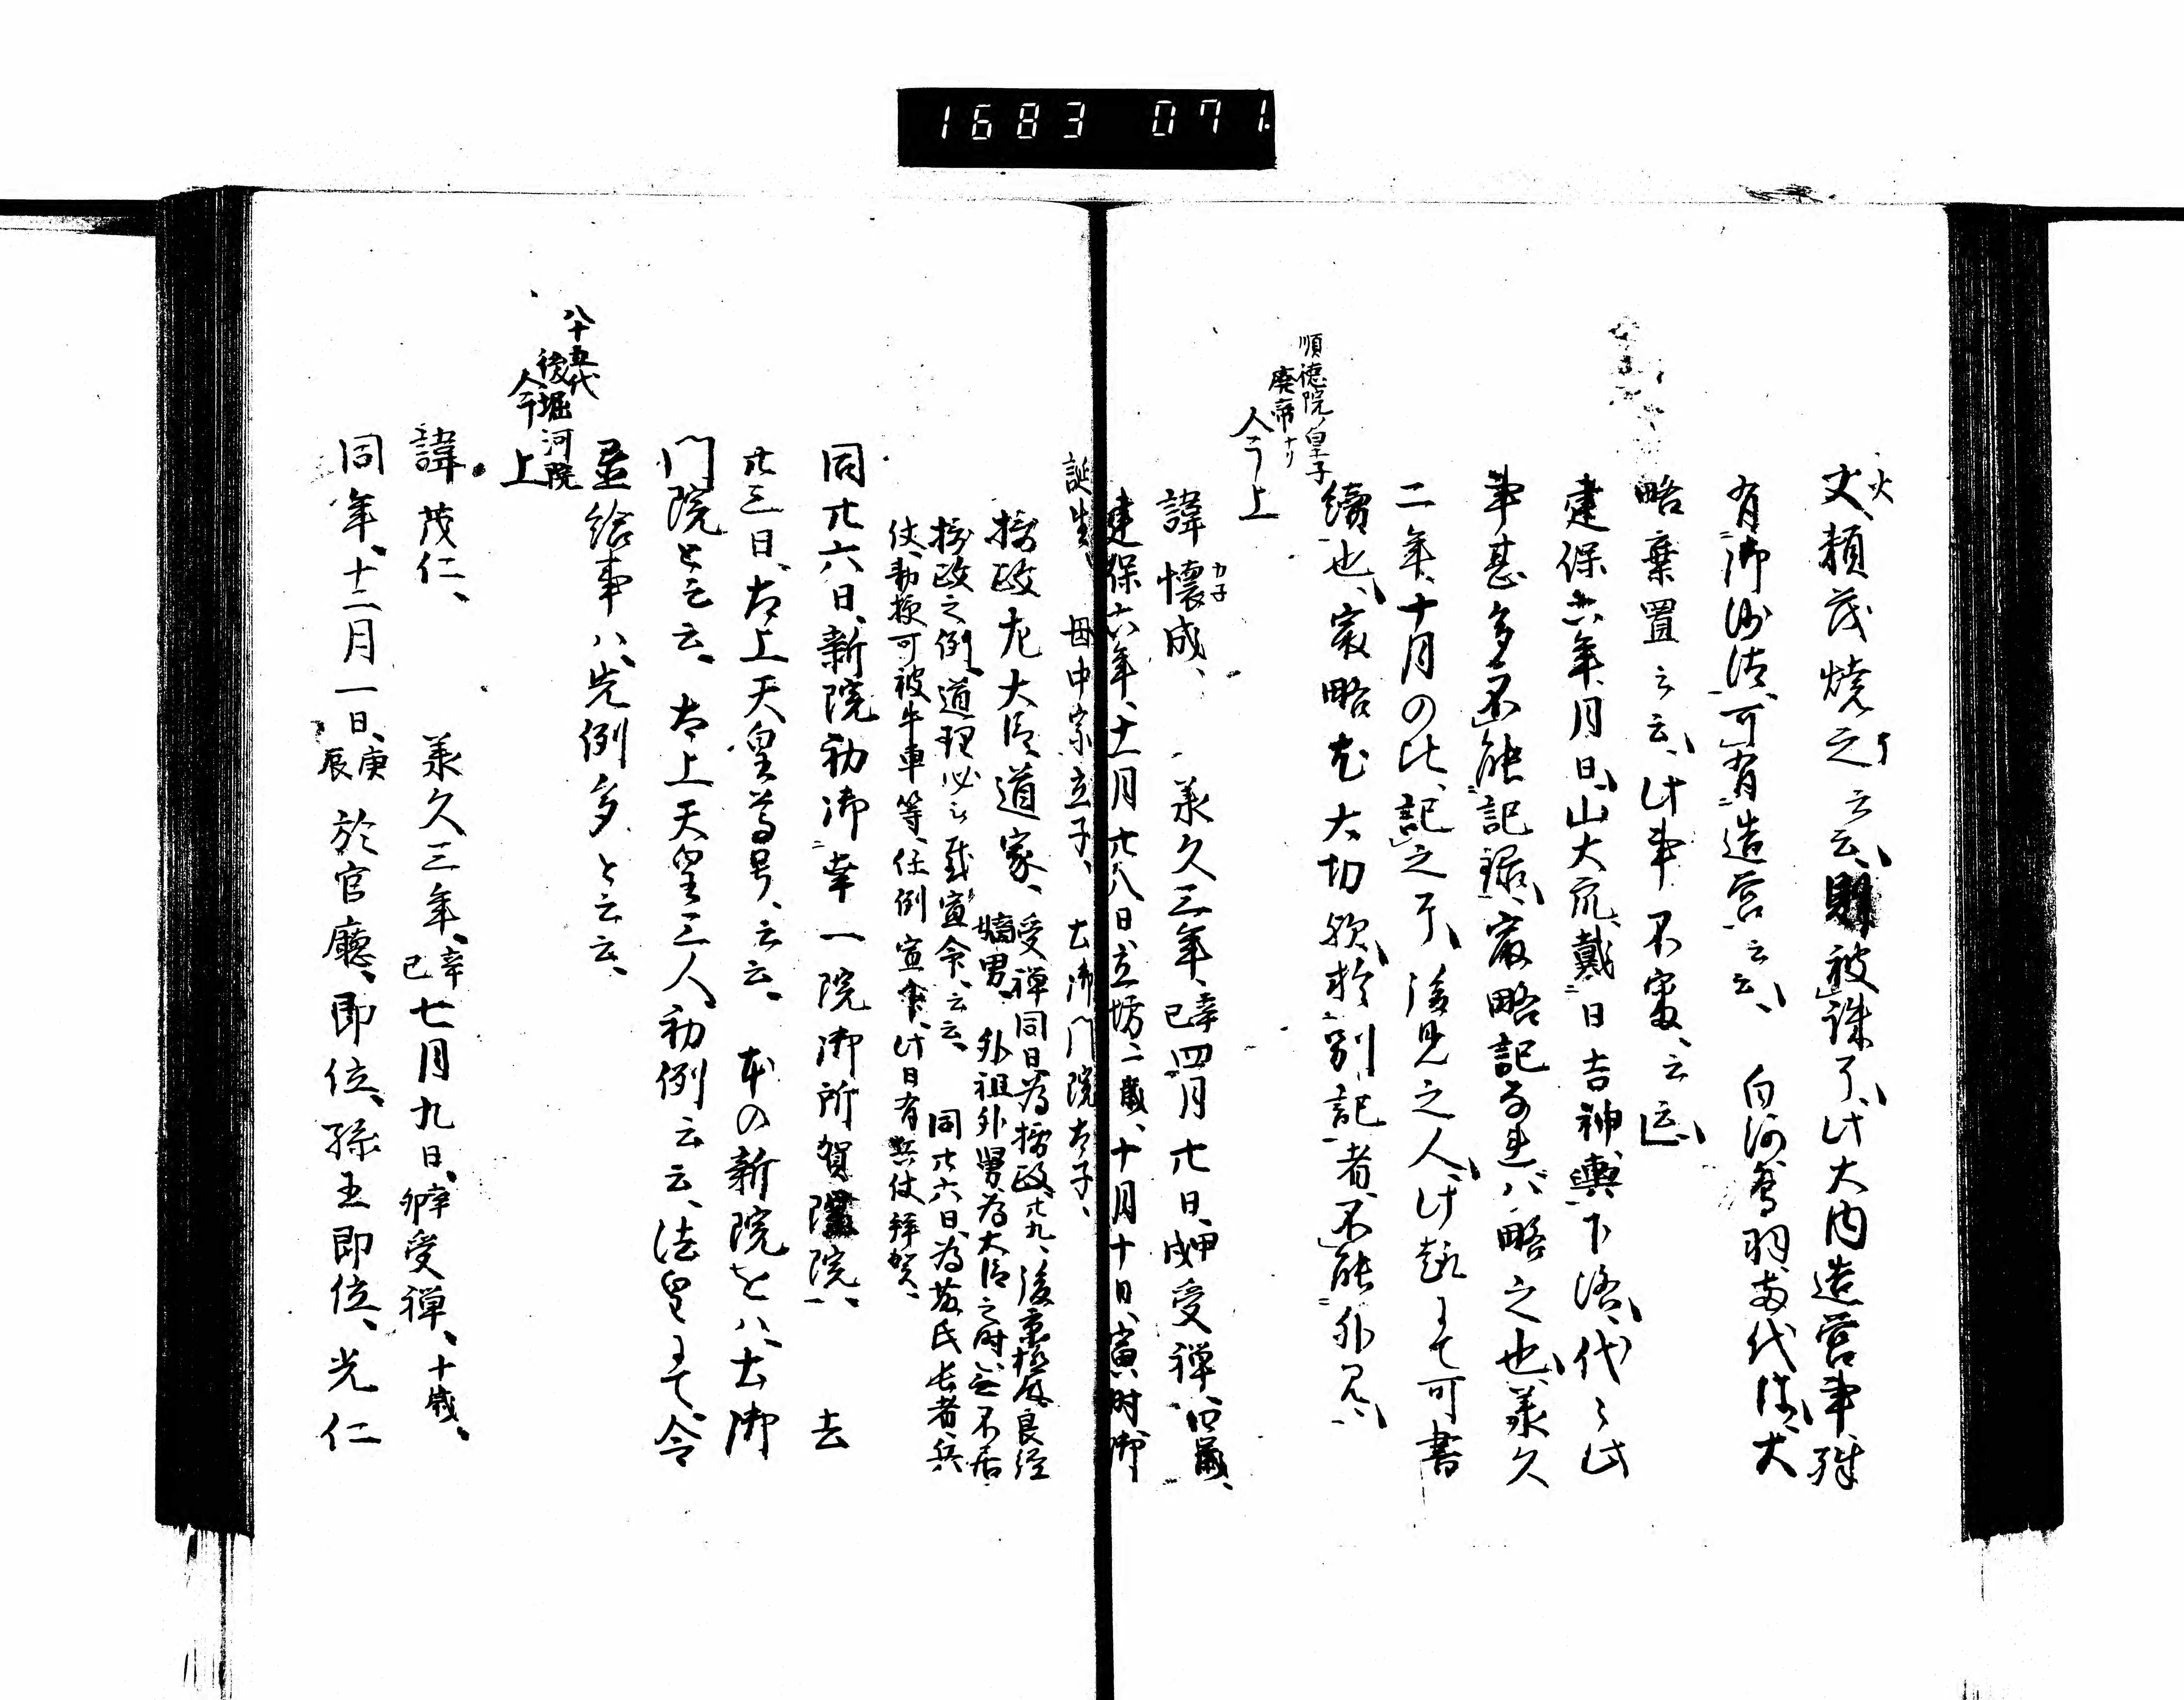 1683 071.
火
丈、頼茂焼之了云云、則被誅了、此大内造営事殊
有御沙汰、可有造営云云、白河鳥羽両代法、大
略棄置云云、此事不審、云云
建保六年月日、山大衆、戴日吉神輿下洛、代々此
事甚多、不能記録、最略記ナレハ略之也、承久
二年、十月の比、記之了、後見之人、此趣ニテ可書
続也、最略尤大切歟、於別記者、不能外見、
順徳院ノ皇子
廃帝ナリ
今上
諱懐成、承久三年、辛巳四月廿日、甲戌受禅、四歳、
カ子
建保六年、十一月廿八日、立坊、二歳、十月十日、寅時御
誕生、母中宗立子、土御門院太子、
摂政左大臣、道家、受禅同日為摂政、廿九、後京極殿良経
嫡男、外祖外舅為大臣之時、無不居
摂政之例、道理必然載宣命、云云、同廿六日、為藤氏長者、兵
仗、勅授可被牛車等、任例宣命、此日有兵仗拝賀、
同廿六日、新院初御幸一院御所賀陽院、去
廿三日、太上天皇尊号、云云、本の新院をハ、土御
門院と云云、太上天皇三人、初例云云、法皇ニテ、令
並給事ハ、先例多と云云、
八十五代
後堀河院
今上
諱茂仁、承久三年、辛巳七月九日、辛卯受禅、十歳、
同年、十二月一日、庚辰於官廳、即位、孫王即位、光仁